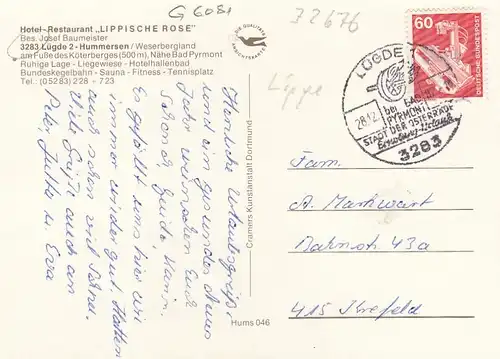 G 6081
32676
Hotel-Restaurant „LIPPISCHE ROSE"
Bes. Josef Baumeister
3283 Lügde 2 - Hummersen / Weserbergland
am Fuße des Köterberges (500 m), Nähe Bad Pyrmont
Ruhige Lage - Liegewiese - Hotelhallenbad
Bundeskegelbahn - Sauna - Fitness - Tennisplatz
Tel.: (0 52 83) 228 + 723
DIE QUALITÄTS
Lippe
60
DEUTSCHE BUNDESPOST
LÜGDE
bei BAD
PYRMONT
STADT DER OSTERRÄDER
3283
Herzliche Urlaubsgrüße
und ein gesundes Neues
Jahr wünschen Euch
Es gefällt uns hier wie
immer wieder gut. Hatten
auch schon viel Schnee.
Viele Grüße auch an
Peter, Jutta u. Eva
Cramers Kunstanstalt Dortmund
Hums 046
Fam.
A. Markwart
Bahnstr 43a
415 Krefeld